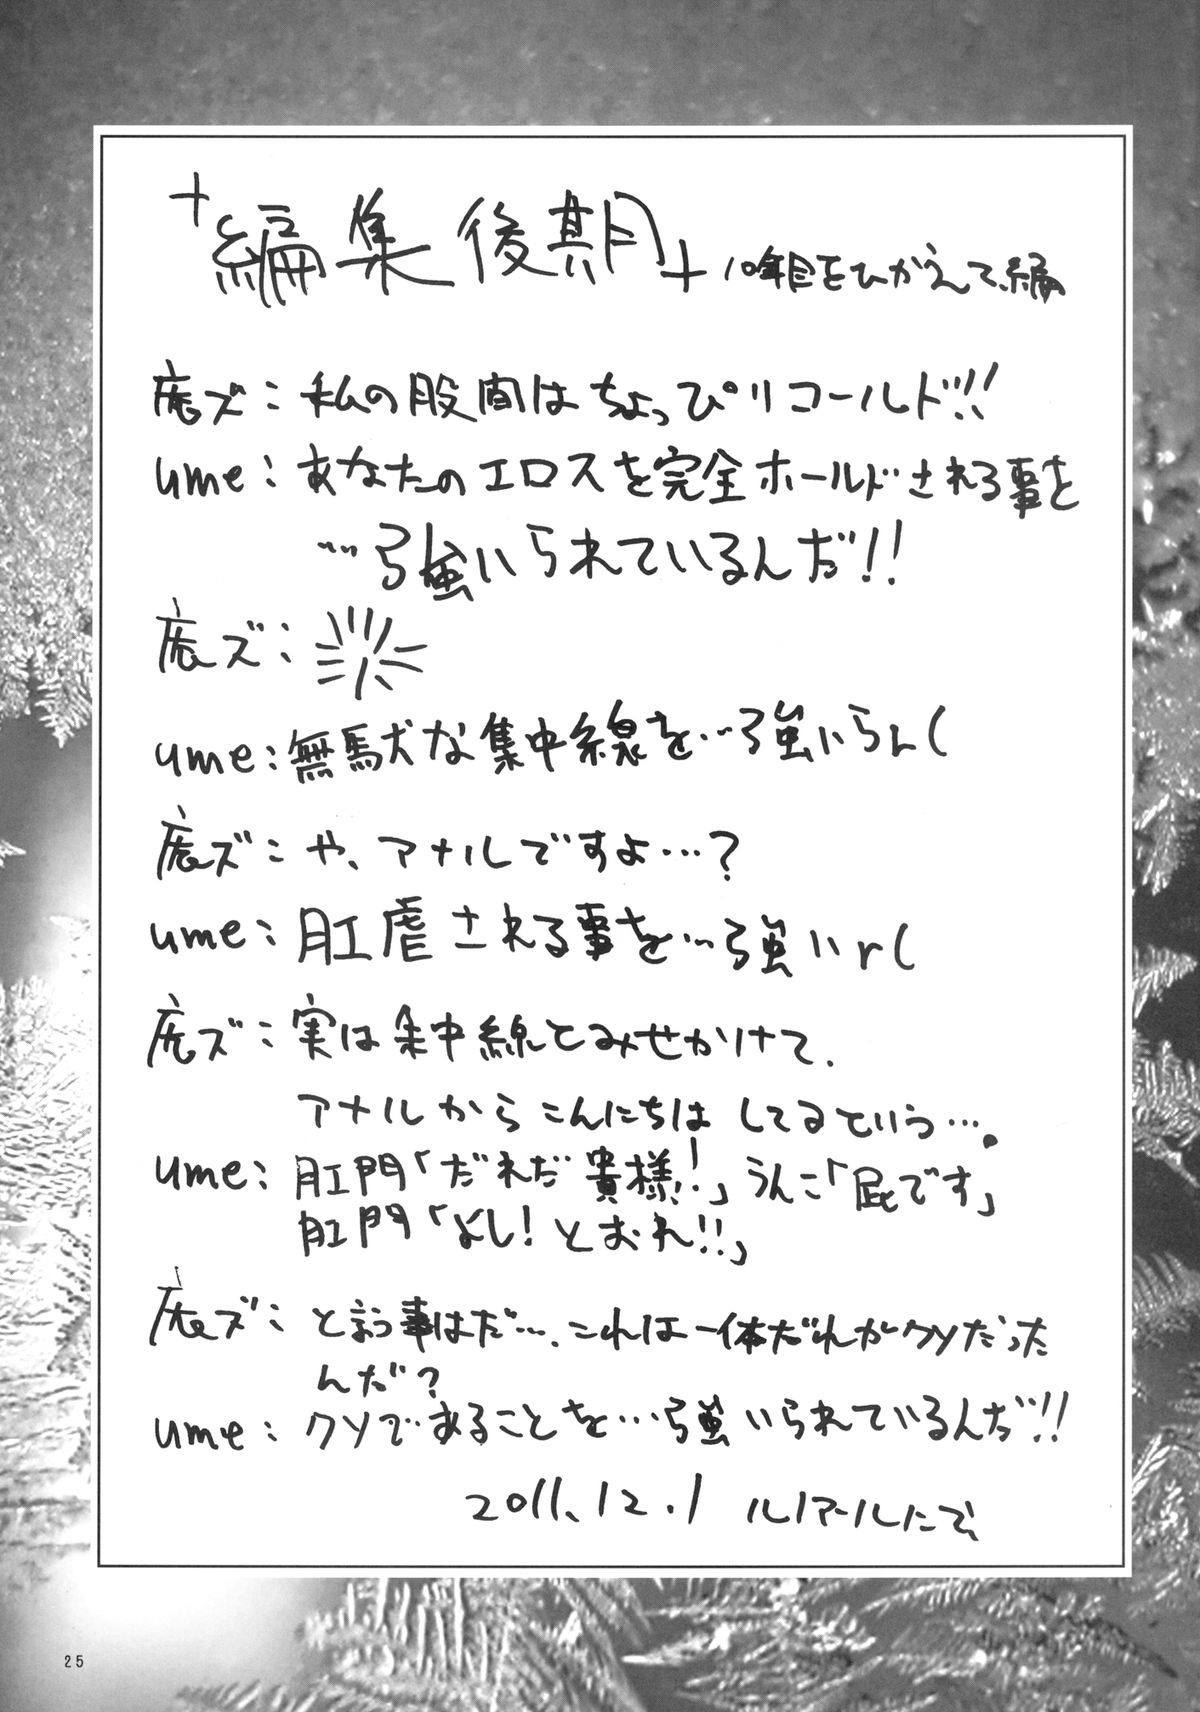 +編集後期+ 10年目をひかえて編
庶ズ：私の股間はちょっぴりコールド!!!
ume：あなたのエロスを完全ホールドされる事を
…強いられているんだ!!
庶ズ：
ume：無駄な集中線を…強いらん(
庶ズ：や、アナルですよ…?
ume：肛虐される事を…強いr(
庶ズ：実は集中線とみせかけて、
アナルからこんにちはしてるという…。
ume：肛門「だれだ貴様!」うんこ「屁です」
肛門「よし!とおれ!!」
庶ズ：と言う事はだ…、これは一体だれがクソだった
んだ?
ume：クソであることを…強いられているんだ!!
2011.12.1 ルノアールにて
25